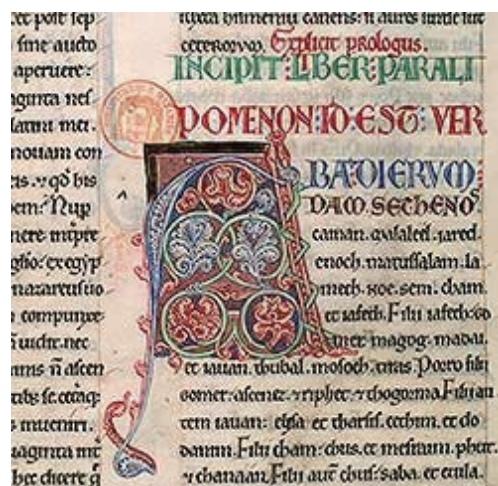 et post sep
sine aucto
aperuere:
aginta
latini mei.
nouiam con
his
em: Nup
glio: ex egyp
compunxe
nec
aginta
hec dicere q
canens: n aures
ceterorum. Explicit prologus.
INCIPIT LIBER PARALI
POMENON: ID EST: VER
BA DIERUM
ADAM. SETH ENOS
cainan. malaleel. iared.
enoch. matussalam. la
mech. noe. sem. cham.
et iafeth. Filii iafeth: Go
mer. magog. madai.
et iauan. thubal. mosoch. tiras. Porro filii
gomer: ascenez. & riphet. & thogorma. Filii au
tem iauan: elisa et tharsis. cethim. et do
danim. Filii cham: chus. et mesraim. phut.
& chanaan. Filii aut chus: saba. et euila.